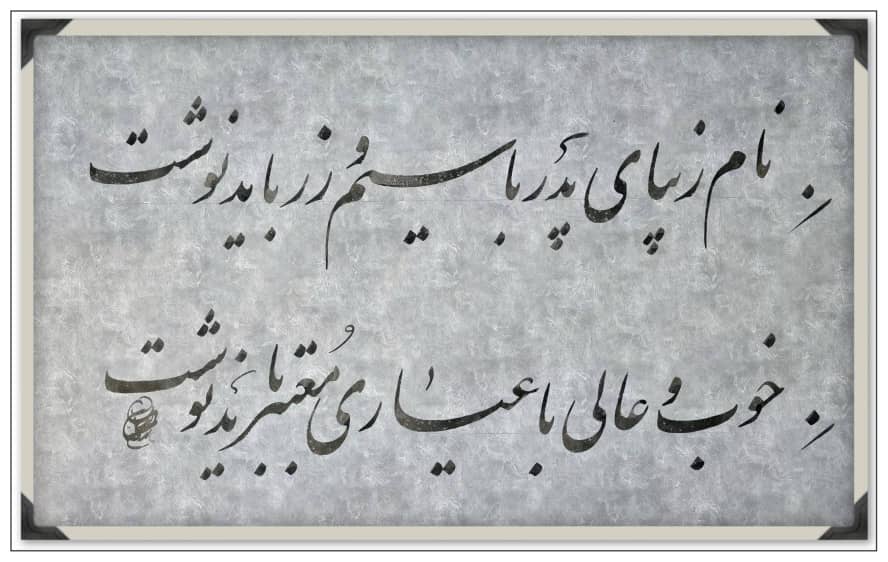 نام زیبای پدر با سیم و زر باید نوشت
خوب و عالی با عیاری مُعتبر باید نوشت